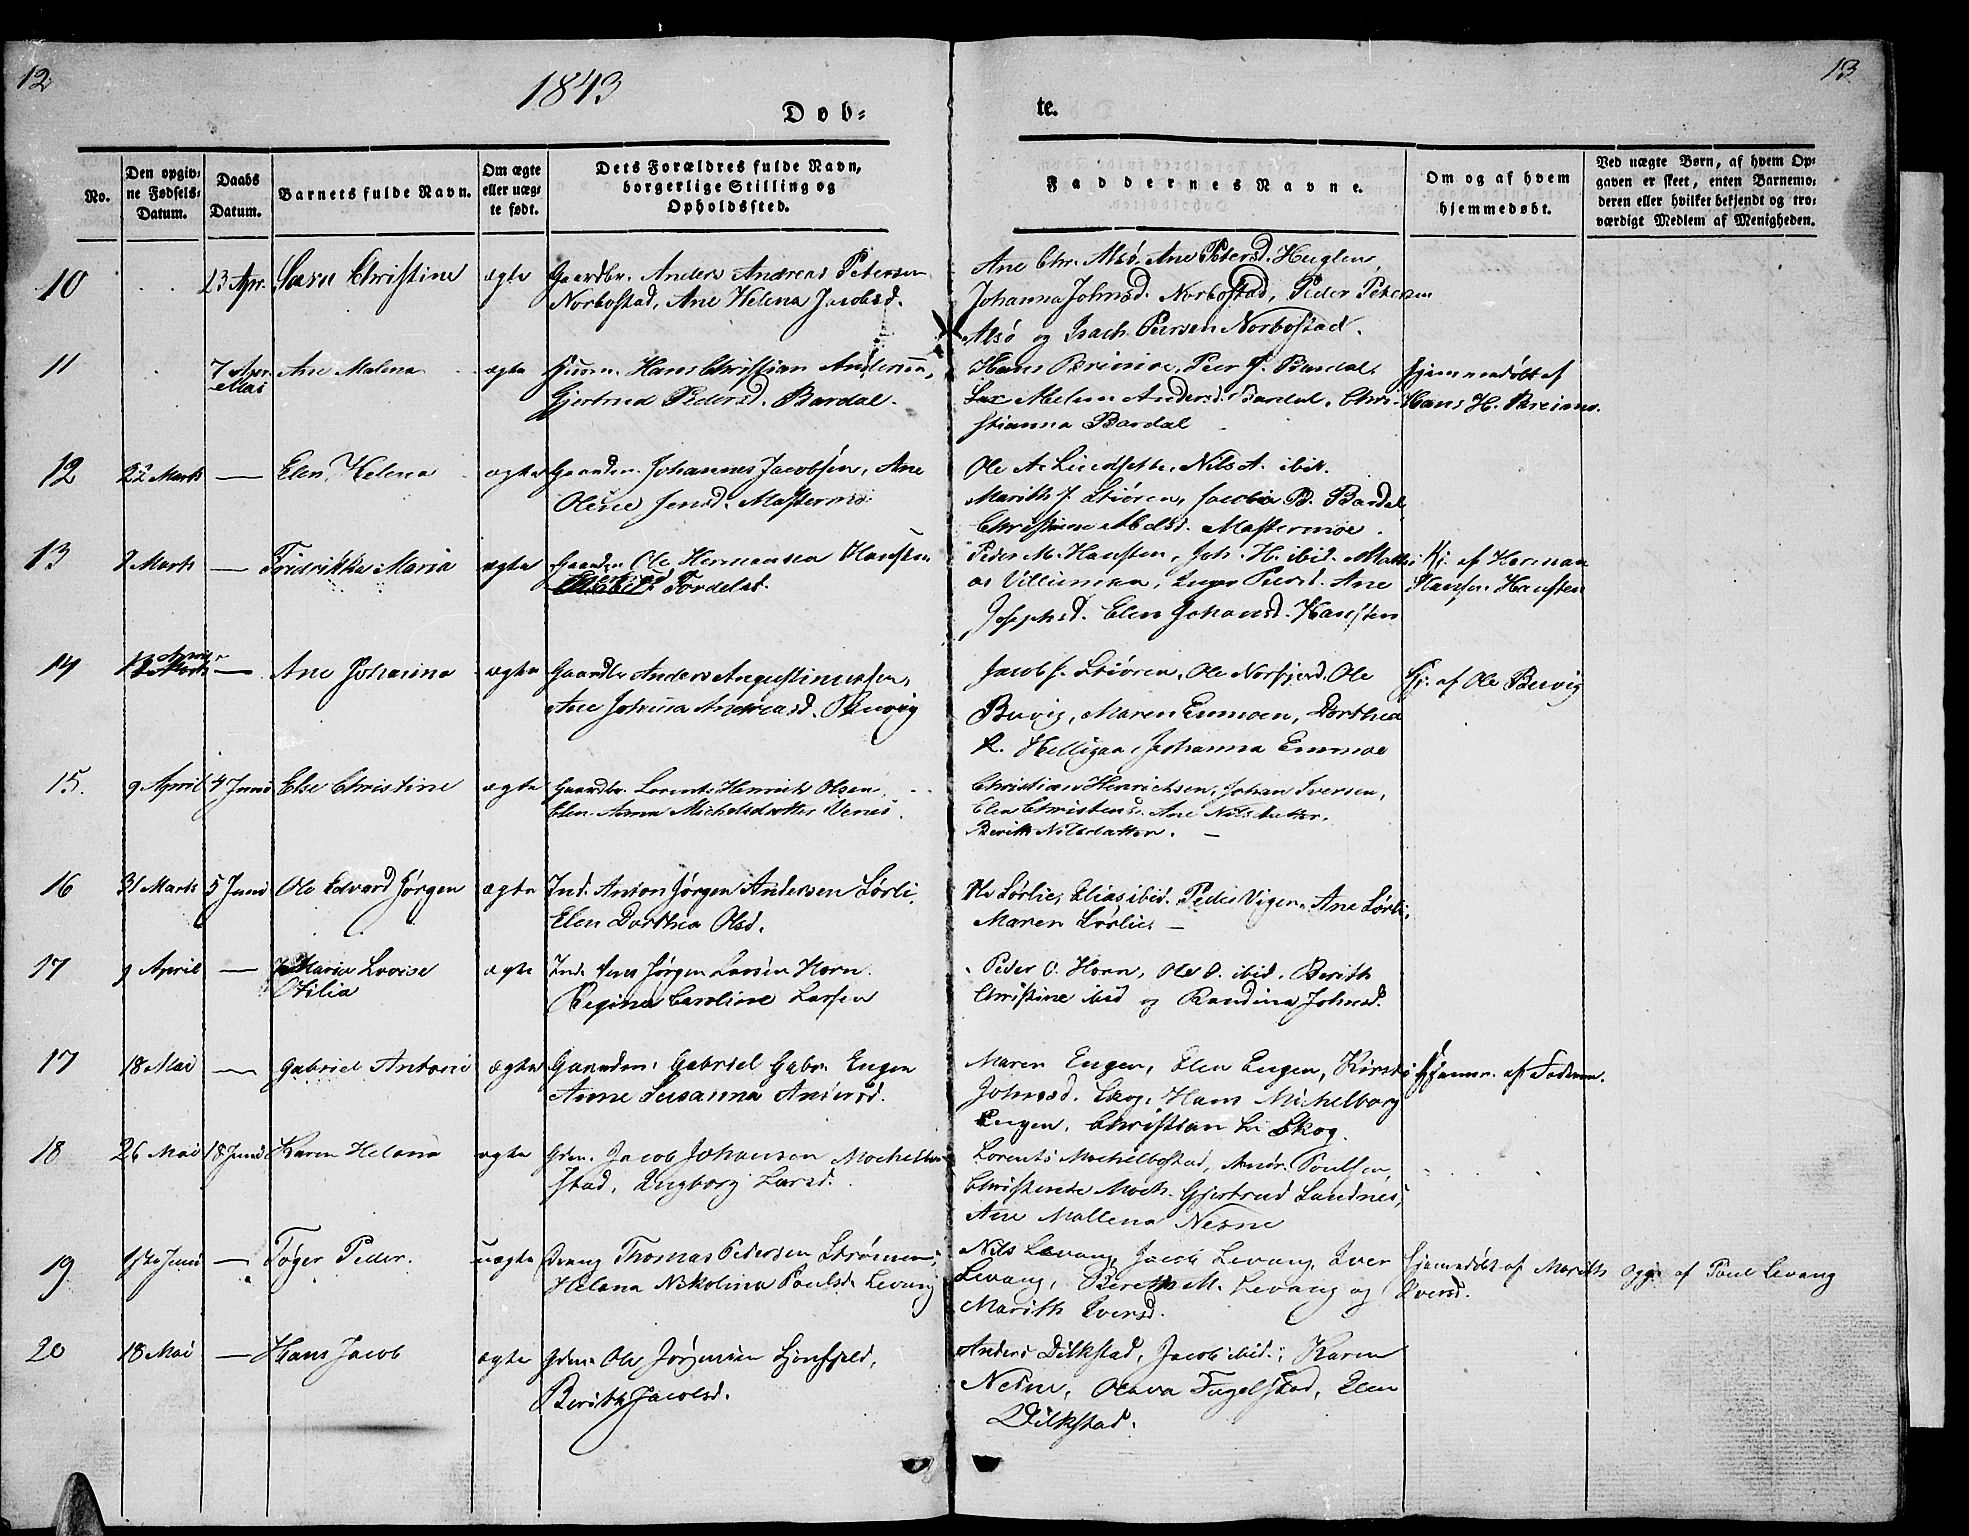 12
1843
Døb-
te.
13
No.
Den opgiv-
ne Fødsels-
Datum.
Daabs
Datum.
Barnets fulde Navn.
Om ægte
eller uæg-
te født.
Dets Forældres fulde Navn,
borgerlige Stilling og
Opholdssted.
Faddernes Navne.
Om og af hvem
hjemmedøbt.
Ved uægte Børn, af hvem Op-
gaven er skeet, enten Barnemo-
deren eller hvilket bekjendt og tro-
værdigt Medlem af Menigheden.
10
23 Apr.
Sara Christine
ægte
Gaardbr. Anders Andreas Petersen
Norbostad, Ane Helena Jacobsd.
Ane Chr. Alsø. Ane Petersd. Huglen,
Johanna Johnsd. Norbostad, Peder Petersen
Alsø og Isach Persen Norbostad.
11
7
Mai
Ane Malena
ægte
Hans Christian Andersen,
Gjertrud Pedersd. Bardal.
Hans Breimoe, Peer J. Bardal,
Melena Andersd. Bardal, Chri-
stianna Bardal
Hjemmedøbt af
Hans H. Breimo.
12
22 Marts
—
Elen Helena
ægte
Gaardm. Johannes Jacobsen, Ane
Oline Jensd. Mastermo.
Ole A. Lindsette, Nils A. ibid.
Marith J. Stiøren, Jacobia P. Bardal
Christine Abelsd. Mastermoe.
13
9 Marts
—
Fridrikka Maria
ægte
Gaardm. Ole Hermansen Hausten
Tordelsd.
Peder M. Hausten, Joh. H. ibid. Math-
as Villumsen, Inger Pedersd. Ane
Josephsd. Elen Johansd. Hausten
Hj. af Herman
Hansen Hausten
14
April
12
—
Ane Johanna
ægte
Gaardbr. Anders Augustinussen,
Ane Johna Andreasd. Buvig
Jacob J. Stiøren, Ole Norfjord, Ole
Buvig, Maren Enmoen, Dorthea
R. Helligaa, Johanna Enmoe
Hj. af Ole Buvig
15.
9 April
4 Juni
Else Christine
ægte
Gaardbr. Lorents Henrich Olsen,
Elen Anna Michelsdatter Vænes.
Christian Henrichsen, Johan Iversen,
Elen Christensd. Ane Nilsdatter.
Berith Nilsdatter. —
16
31 Marts
5 Juni
Ole Edvard Jørgen
ægte
Ind. Anton Jørgen Andersen Sørli,
Elen Dorthea Olsd.
Ole Sørlie, Elias ibid. Peder Vigen, Ane Sørli,
Maren Sørlie. —
17
9 April
—
Maria Lovise
Otilia
ægte
Ind. Jens Jørgen Larsen Horn
Regina Caroline Larsen
Peder O. Horn, Ole O. ibid. Berith
Christine ibid og Randina Johnsd.
17
18 Mai
—
Gabriel Antoni
ægte
Gaardm. Gabriel Gabr. Engen
Anne Susanna Andersd.
Maren Engen, Elen Engen, Kirsti
Johnsd. Skog, Hans Michelborg
Engen, Christian L. Skog.
Hjemm. af Faderen.
18
26 Mai
18 Juni
Karen Helena
ægte
Gdm. Jacob Johansen Mochelbo-
stad, Ingborg Larsd.
Lorents Mochelbostad, Andr. Poulsen,
Christense Moch. Gjertrud Sandnes,
Ane Mallena Nesne
19
Juni
—
Tøger Peder.
uægte
Dreng Thomas Pedersen Strømmen,
Helena Nikolina Paulsd. Levang
Nils Levang, Jacob Levang, Iver
Levang, Bereth M. Levang og
Marith Iversd.
Hjemmedøbt af Marith
Iversd.
Opg. af Poul Levang
20
18 Mai
—
Hans Jacob
ægte
Gdm. Ole Jørgensen Sjonfjeld,
Berith Jacobsd.
Anders Dilkstad, Jacob ibid., Karen
Nesne, Olava Fugelstad, Elen
Dilkstad.